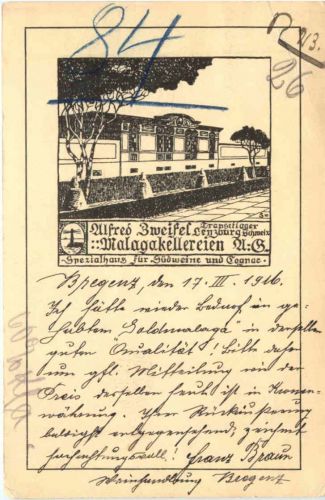 84
213.
26
Alfred Zweifel Transitlager
Lenzburg Schweiz
::Malagakellereien A:G.
Spezialhaus für Südweine und Cognac
Bregenz, den 17. III. 1916.
Ich hätte wieder Bedarf in ge-
Goldmalaga in derselben
guten Qualität! Bitte daher
um gfl. Mitteilung wie der
Preis derselben heute ist in Kronen-
währung. Ihrer Rückäusserung
entgegensehend, zeichnet
hochachtungsvoll! Franz Braun
Weinhandlung Bregenz